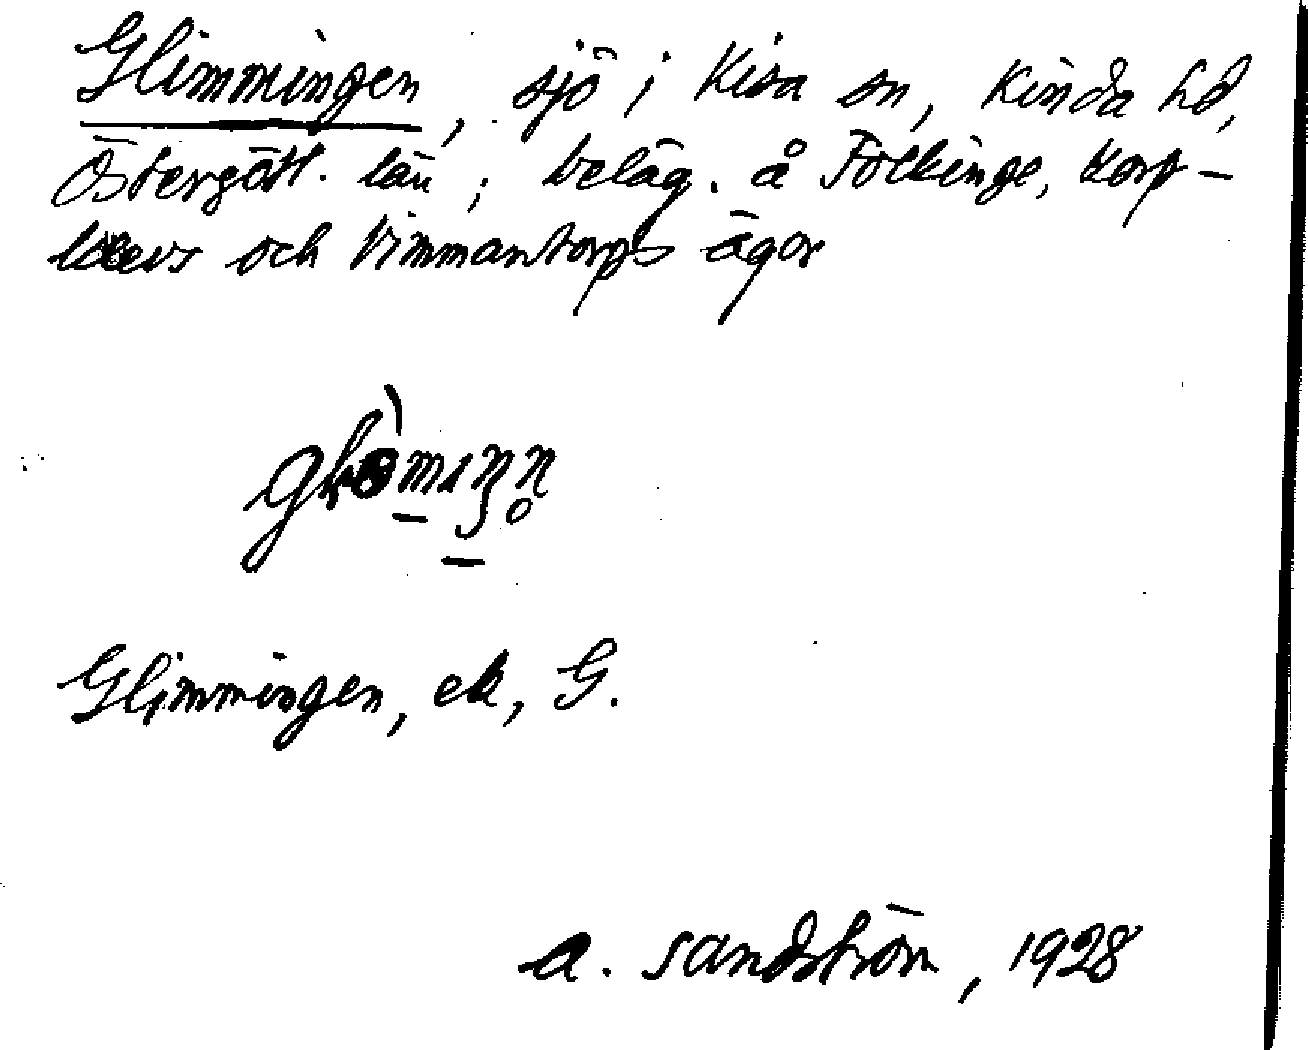 Glimmingen, sjö i Kisa sn, Kinda hd,
Östergötl. län; beläg. å Föllinge, Korp-
klevs och Vimmantorps ägor
Glimmingen, ek, G.
A. Sandström, 1928